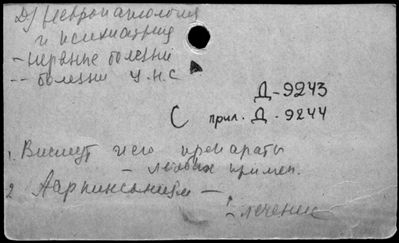 Д) невропатология
и психиатрия
- нервные болезни
-- болезни Ц.Н.С
Д-9243
С прил. Д-9244
1. Висмут и его препараты
- лечебн. примен.
2
- лечение